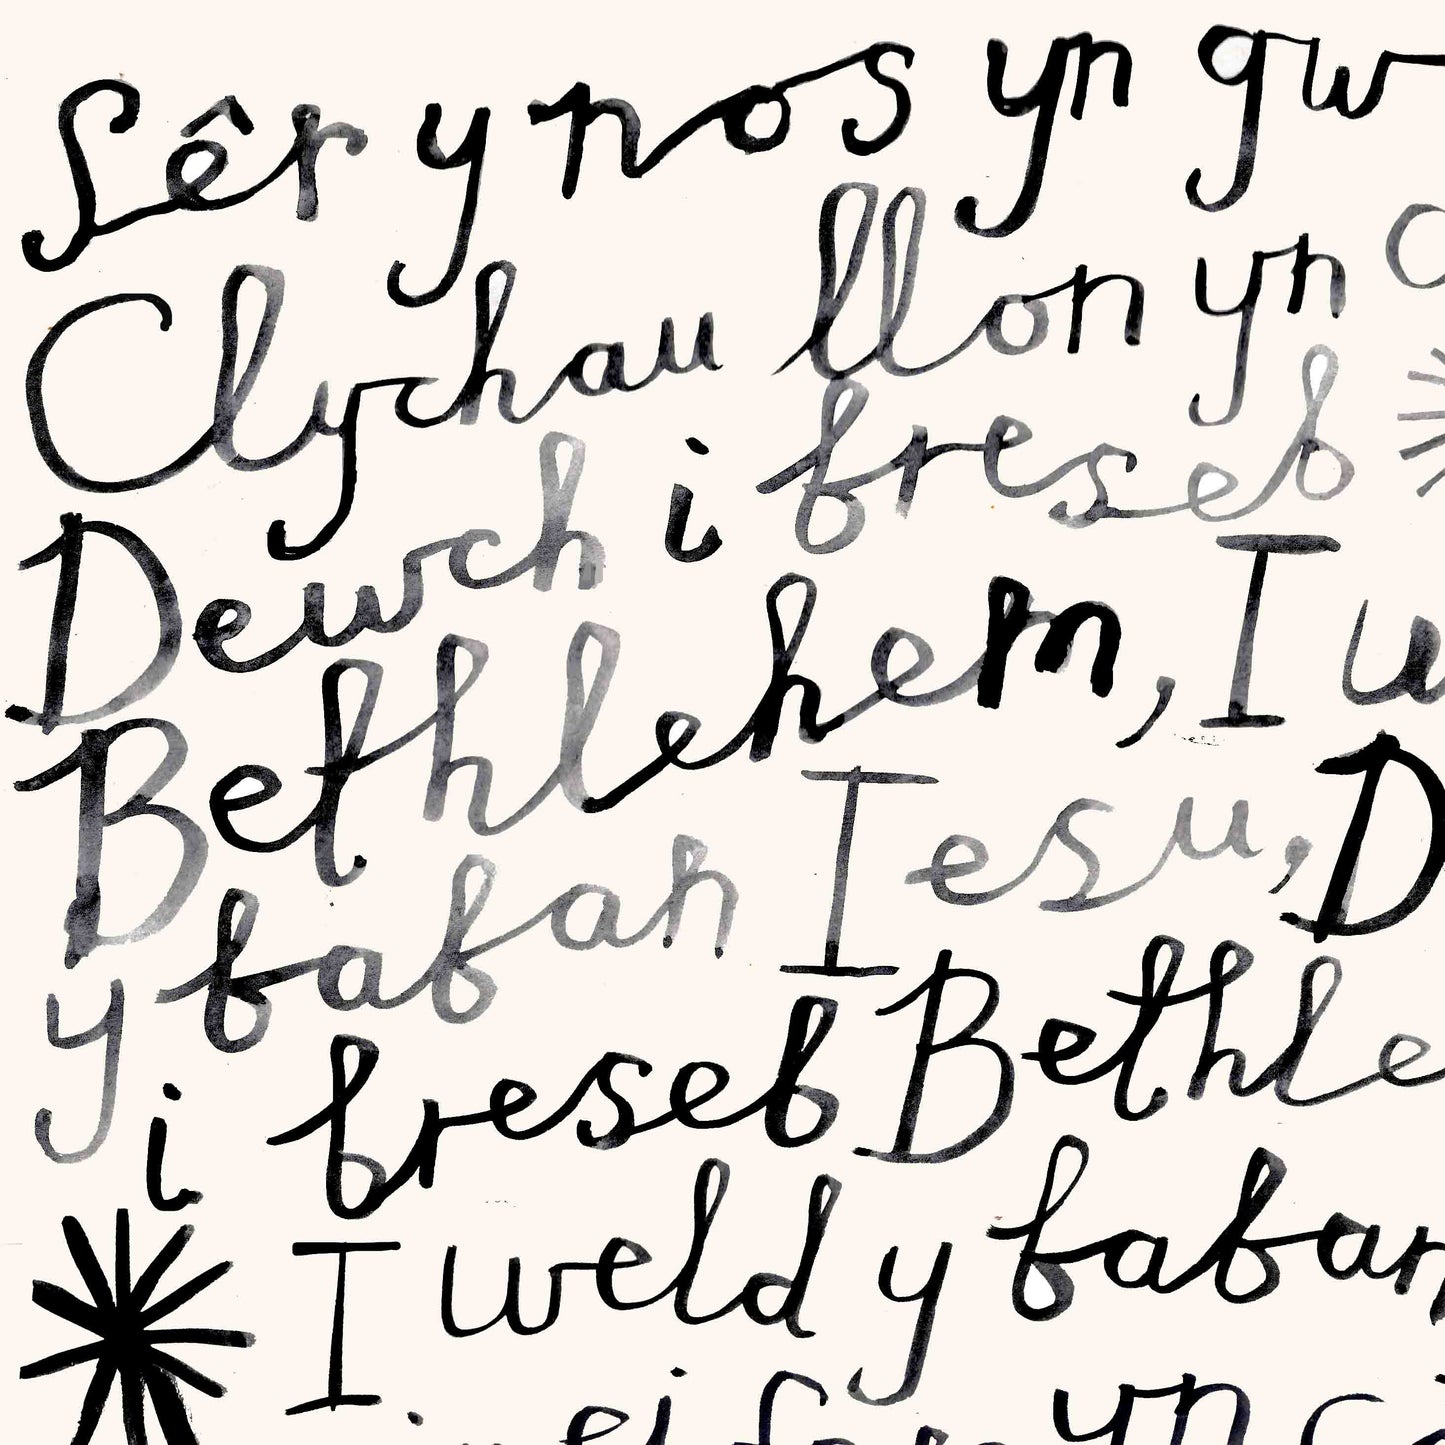 Sêr y nos yn gw
Clychau llon yn
Dewch i breseb
Bethlehem, I w
y baban Iesu, D
i breseb Bethle
I weld y baban
yn